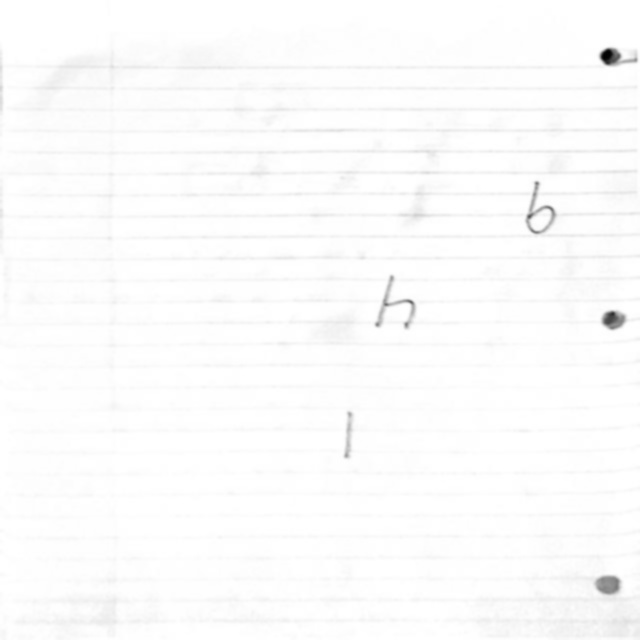 b
h
l